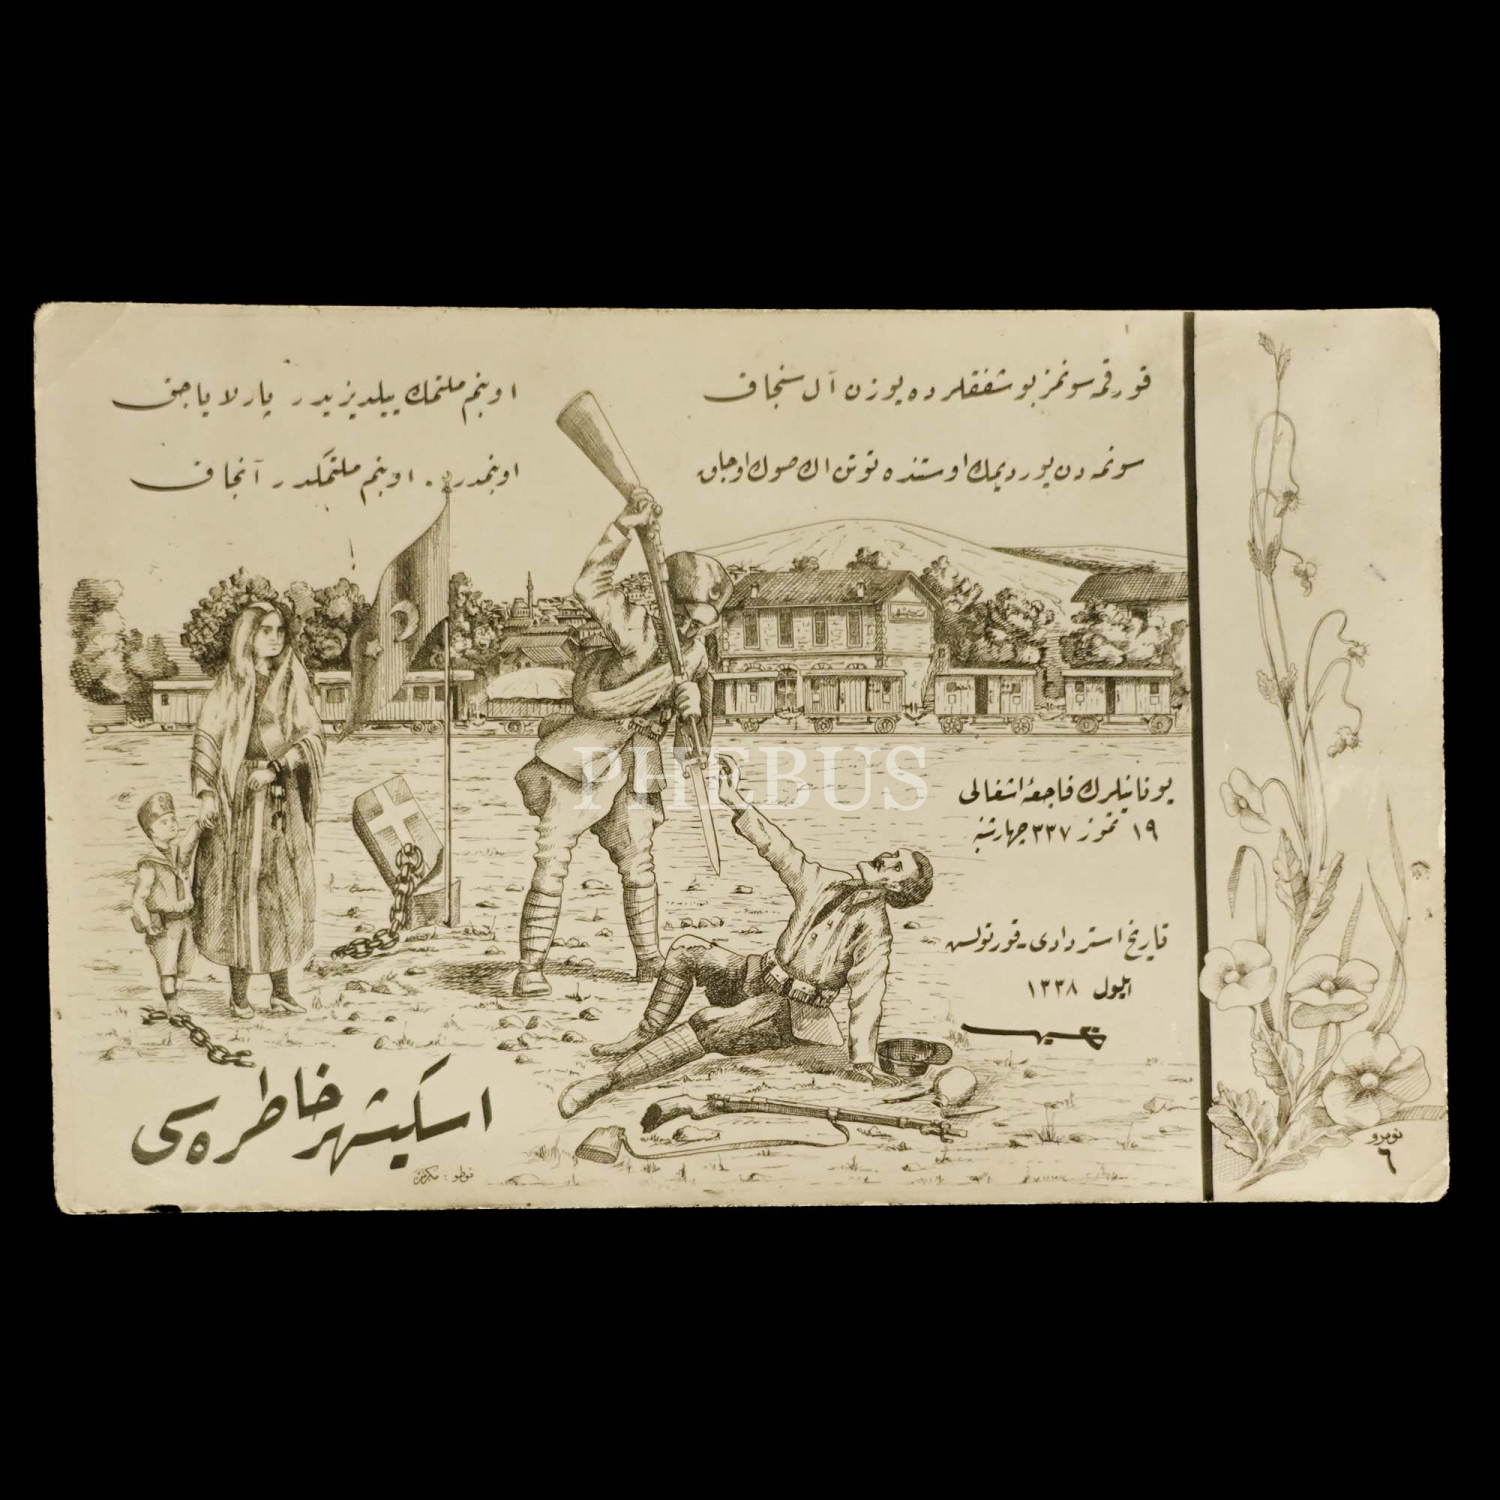 قورقمه سونمز بو شفقلرده یوزن آل سنجاق
سونمه دن یوردیمك اوستنده توتن اك صوك اوجاق
او بنم ملتمك ییلدیزیدر پارلایاجق
او بنمدر، او بنم ملتمكدر آنجاق
یونانیلرك فاجعۀ اشغالی
١٩ تموز ٣٣٧ چهارشنبه
تاریخ استردادی - قورتولش
ایلول ١٣٣٨
اسكیشهر خاطره سی
فوطو :
نومرو
٦
PHEBUS